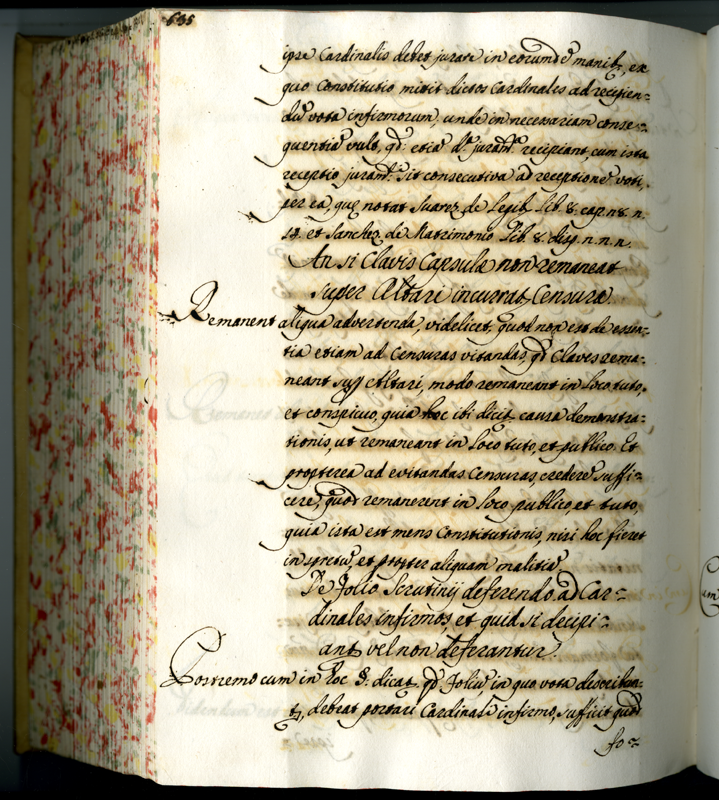 635
ipse Cardinalis debet jurare in eorumd. manib., ex
quo Constitutio mittit dictos Cardinales ad recipien=
dū vota infirmorum, unde in necessariam conse=
quentiā vult, qd. etiā d. juramt. recipiant, cum ista
receptio juramt. sit consecutiva ad receptionē voti,
per ea, quę notat Suarez de Legib. Lib. 8. cap. n. 8. n.
et Sanchez de Matrimonio Lib. 8. disp. n. n. n.
An si Clavis Capsulæ non remaneat
super Altari incurrat Censura.
Remanent aliqua advertenda, videlicet, quod non est de essen=
tia etiam ad Censuras vitandas, qd Claves rema=
neant supr Altari, modo remaneant in loco tuto,
et conspicuo, quia hoc ibi dicit. causa demonstra=
tionis, ut remaneant in loco tuto, et publico. Et
propterea ad evitandas Censuras, crederē suffi=
cere, quod remanerent in loco publico, et tuto,
quia ista est mens Constitutionis, nisi hoc fieret
in spretū, et propter aliquam malitiā.
De Folio Scrutinij deferendo ad Car=
dinales infirmos, et quid si decipi=
ant vel non deferantur.
Postremo cum in hoc §. dicat. qd Foliū in quo vota describan=
t., debeat portari Cardinali infirmo, sufficit quod
fo=